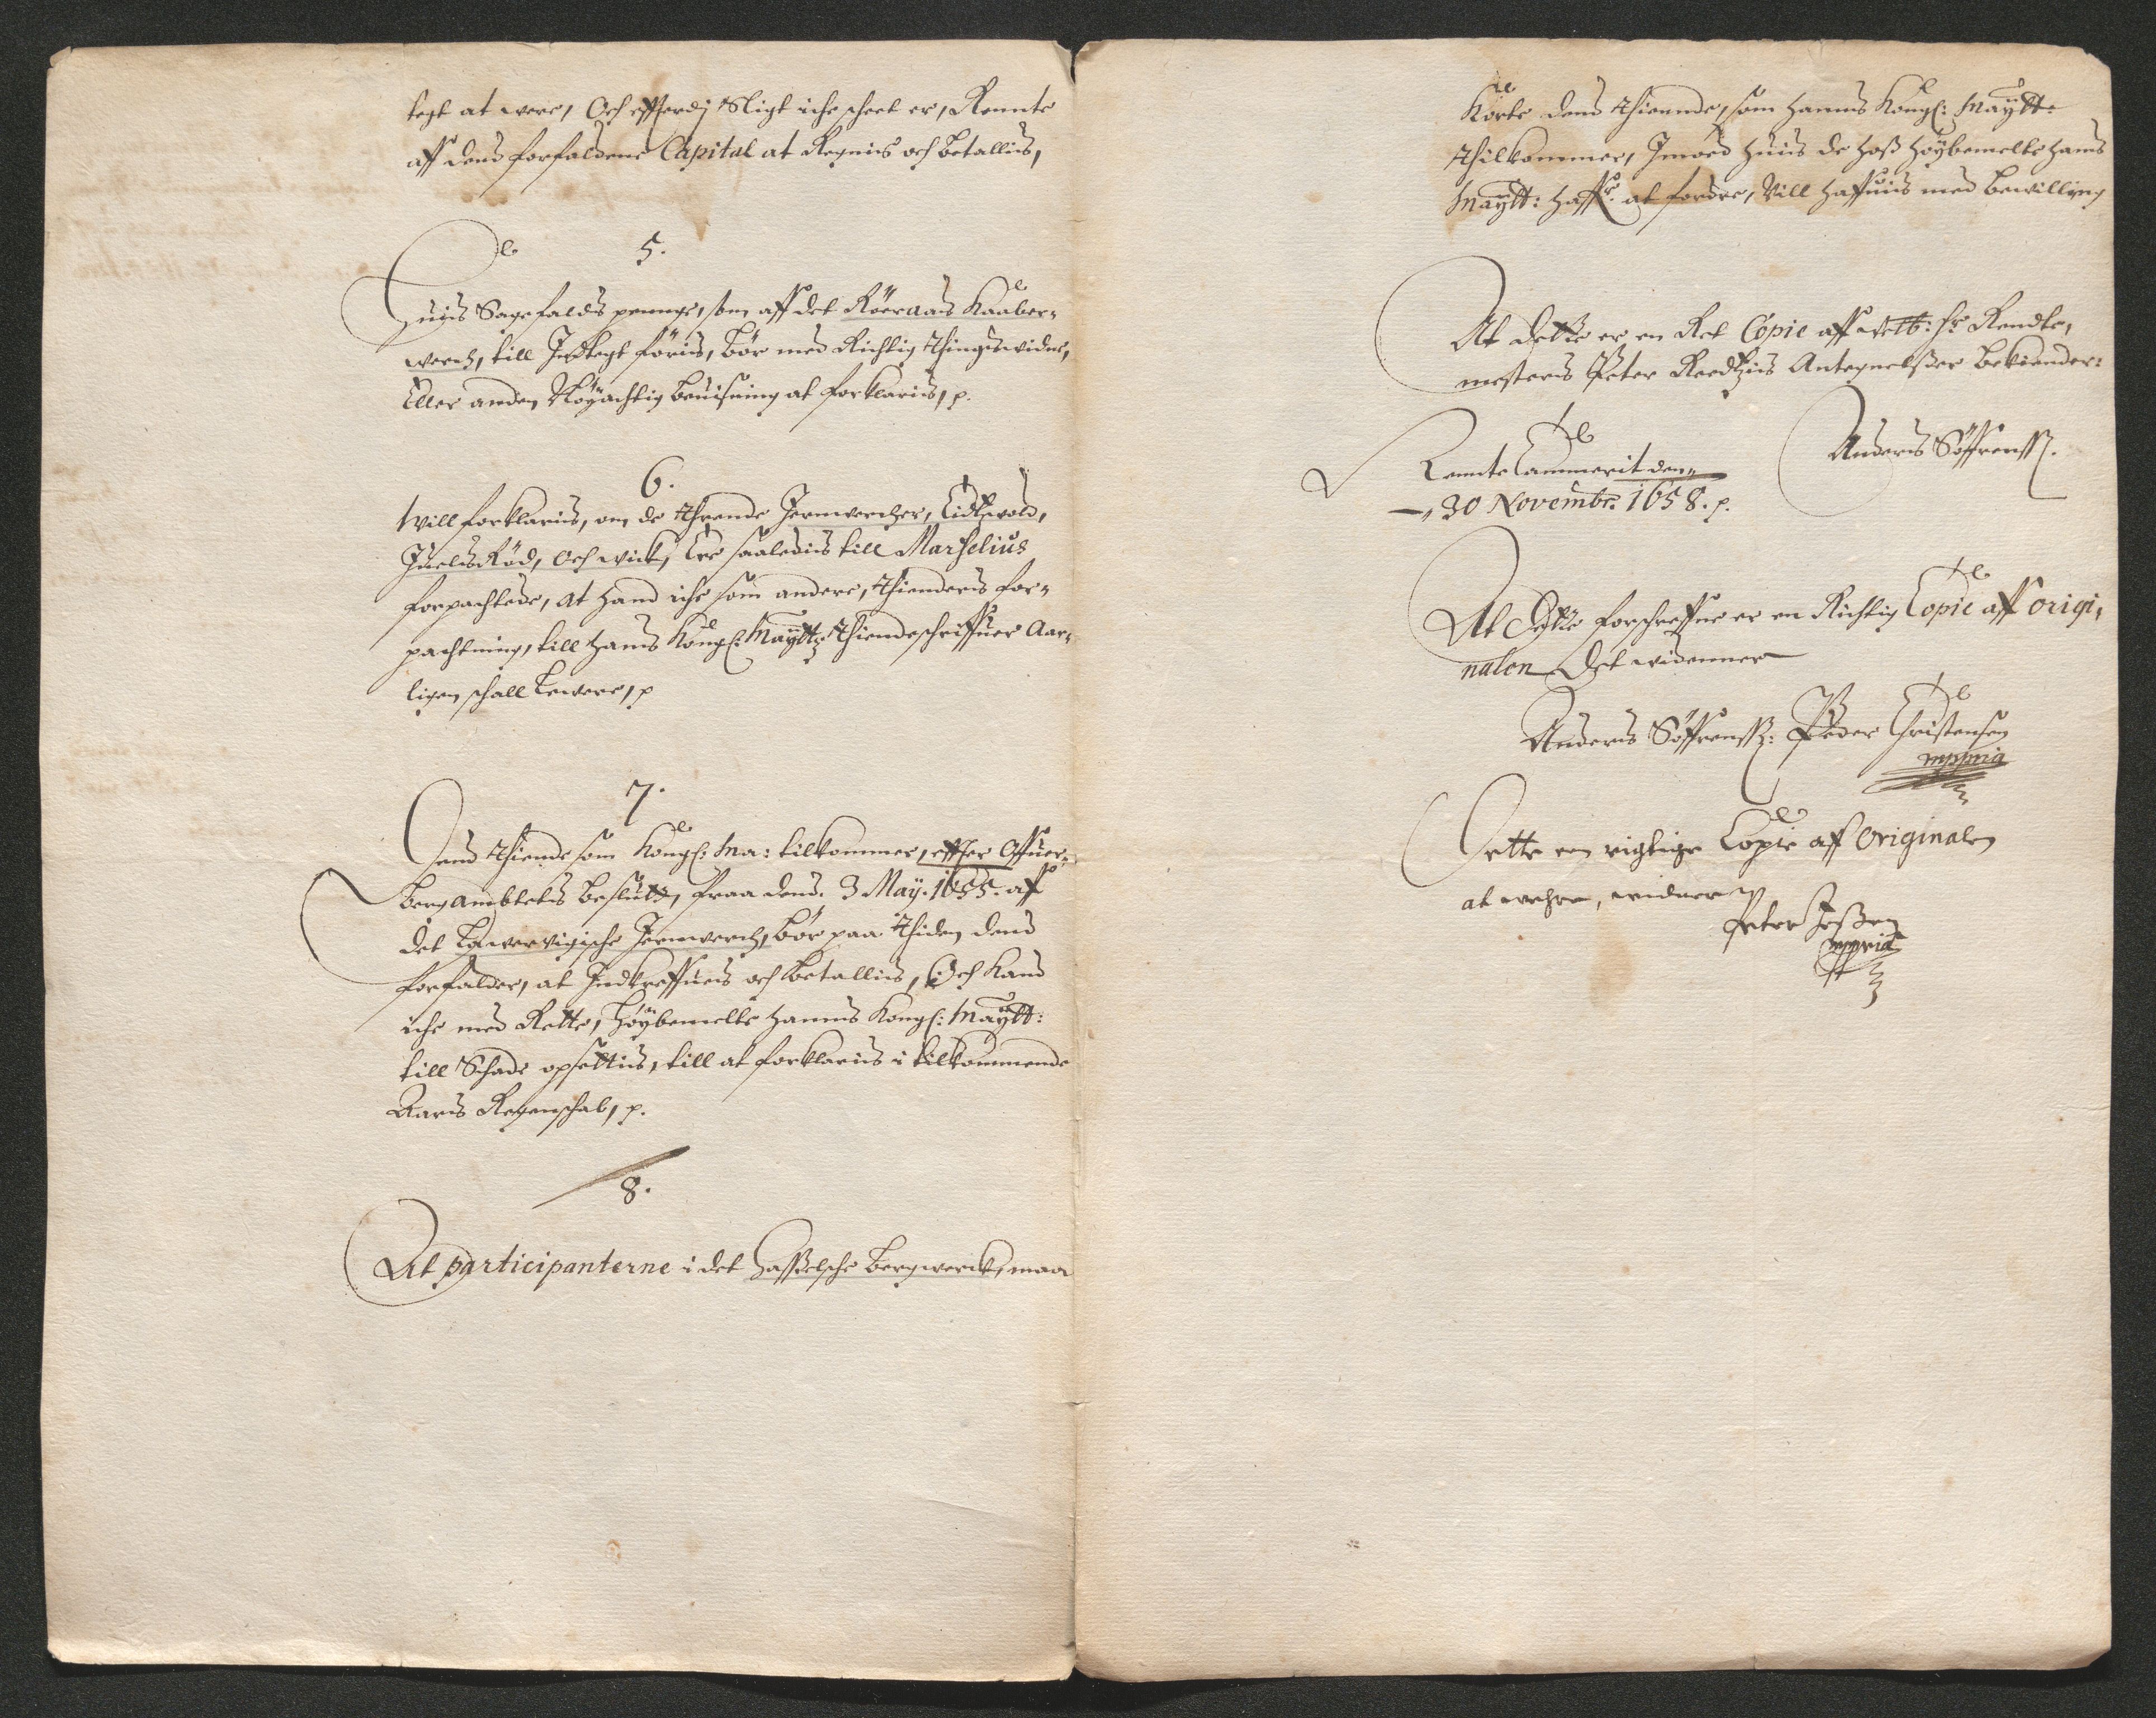 legt at were, Och efftterdj Sligt iche scheet er, Rennte
aff dend forfaldene Capital at Regnis och betallis,
5.
Huis Sagefalds penge, som aff det Röeraas Kaaber-
werch, till Indtegt föris, bör med Richtig Thingsvidne,
Eller anden Nöyachtig beuisning at forklaris, p.
6.
Will forklaris, om de thrende Jernwercher, Eidsvold,
och wick, Ere saaledis till Marselius
forpachtede, at hand iche som andere, Thienderis for-
pachtning, till hans Kongl: Maytts Thiendeschriffuer Aar-
ligen schall Lewere, p
7.
Dend Thiende som Kongl: Ma: tilkommer, effter Offuer-
bergambtetis beslutt, fraa dend. 3 Maÿ. 1655. aff
det Lawervigische Jernwerch, bör paa Thiden dend
forfalder, at Indkreffueis och betallis, Och kand
iche med Rette, Höÿbemelte hannis Kongl: Maytt:
till Schade opsettis, till at forklaris i tilkommende
Aaris Regenschab, p.
8.
At participanterne i det Hasselsche bergwerck, maa
Korte dend Thiennde, som hannis Kongl: Maytt:
Thilkommer, Imod huis de hoß höÿbemelte hans
Maytt: haffr. at fordre, Vill haffuis med bewilling
At dette er en Ret Copie aff Welb: Hr Rendte-
mesteris Peter Reedtzis Antegnelßer bekiender:
Rennte Cammerit den
30 Novembr: 1658. p.
Anders Söffrenss.
At dette forschreffne er en Richtig Copie aff origi-
nalen Det widenner
Anders Söffrenss: Peder Christensen
mppria
Dette en rigtige Copie aff Originalen
at wehre, widner
Peter
mppria